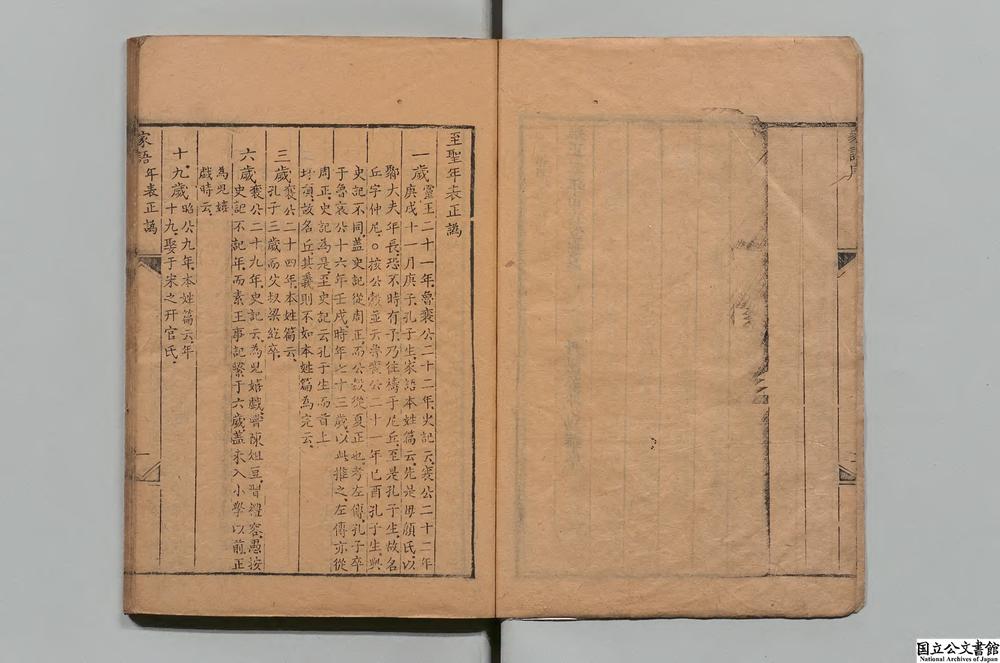 至聖年表正譌
一歲 靈王二十一年魯襄公二十二年史記云襄公二十二年
庚戌十一月庚子孔子生家語本姓篇云先是毋顔氏以
鄹大夫年長恐不時有子乃往禱于尼丘至是孔子生故名
丘字仲尼○按公榖並云魯襄公二十一年已酉孔子生與
史記不同盖史記從周正而公榖從夏正也考左傳孔子卒
于魯哀公十六年壬戌時年七十三歲以此推之左傳亦從
周正史記為是至史記云孔子生而首上
圩頂故名丘其義則不如本姓篇為完云
三歲 襄公二十四年本姓篇云
孔子三歲而父叔梁紇卒
六歲 襄公二十九年史記云為兒嬉戲嘗陳俎豆習禮容愚按
史記不記年而素王事記繫于六歲盖未入小學以前正
為兒嬉
戲時云
十九歲 昭公九年本姓篇云年
十九娶于宋之幵官氏
家語 年表正譌 一
國立公文書館
National Archives of Japan